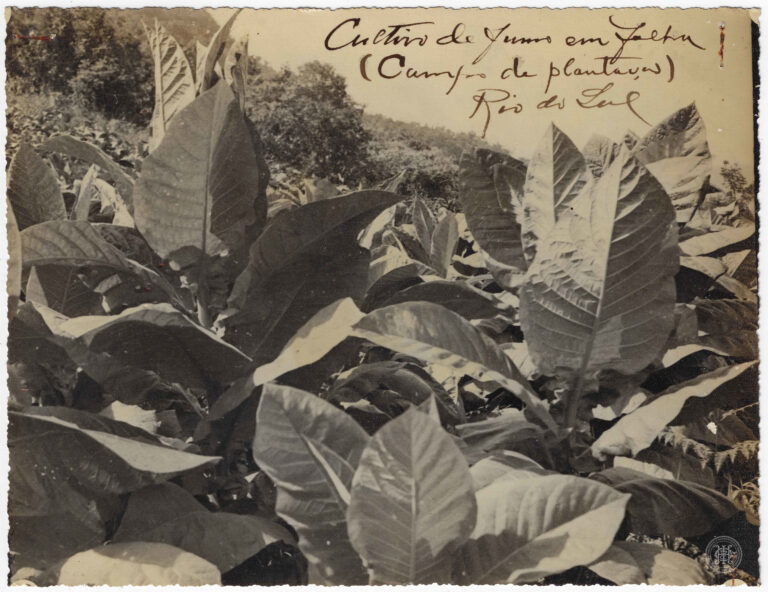 Cultivo de fumo em folha
(Campo de plantação)
Rio do Sul